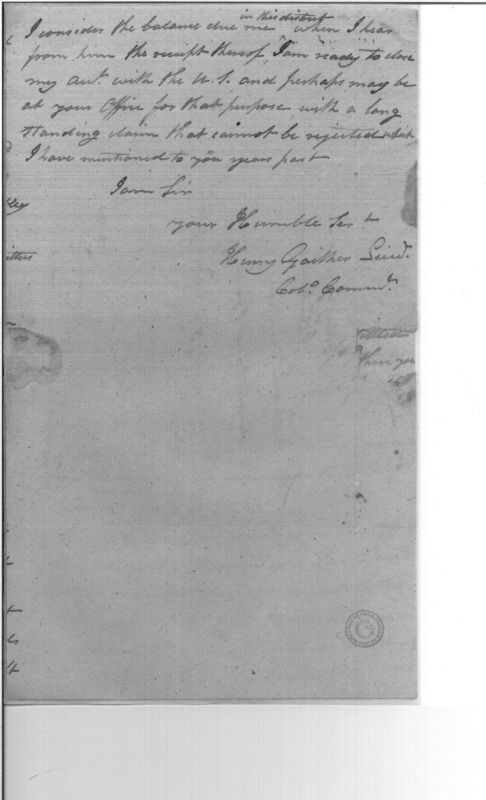 in this district
I consider the balance due me when I hear
from him the receipt thereof, I am ready to close
my Acct. with the U.S. and perhaps may be
at your Office for that purpose with a long
standing claim that cannot be rejected which
I have mentioned to you years past
I am Sir
your Humble Sert
Henry Gaither Lieut.
Colo. Commt.